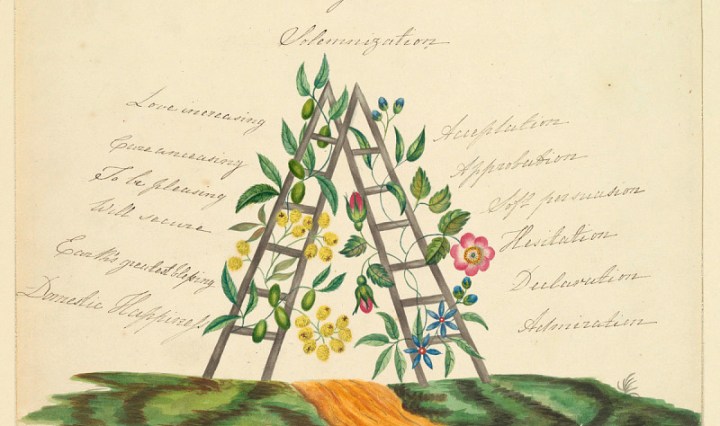 Solemnization
Love increasing
Care unceasing
To be pleasing
Will secure
Earth's greatest blessing
Domestic Happiness
Acceptation
Approbation
Soft persuasion
Hesitation
Declaration
Admiration